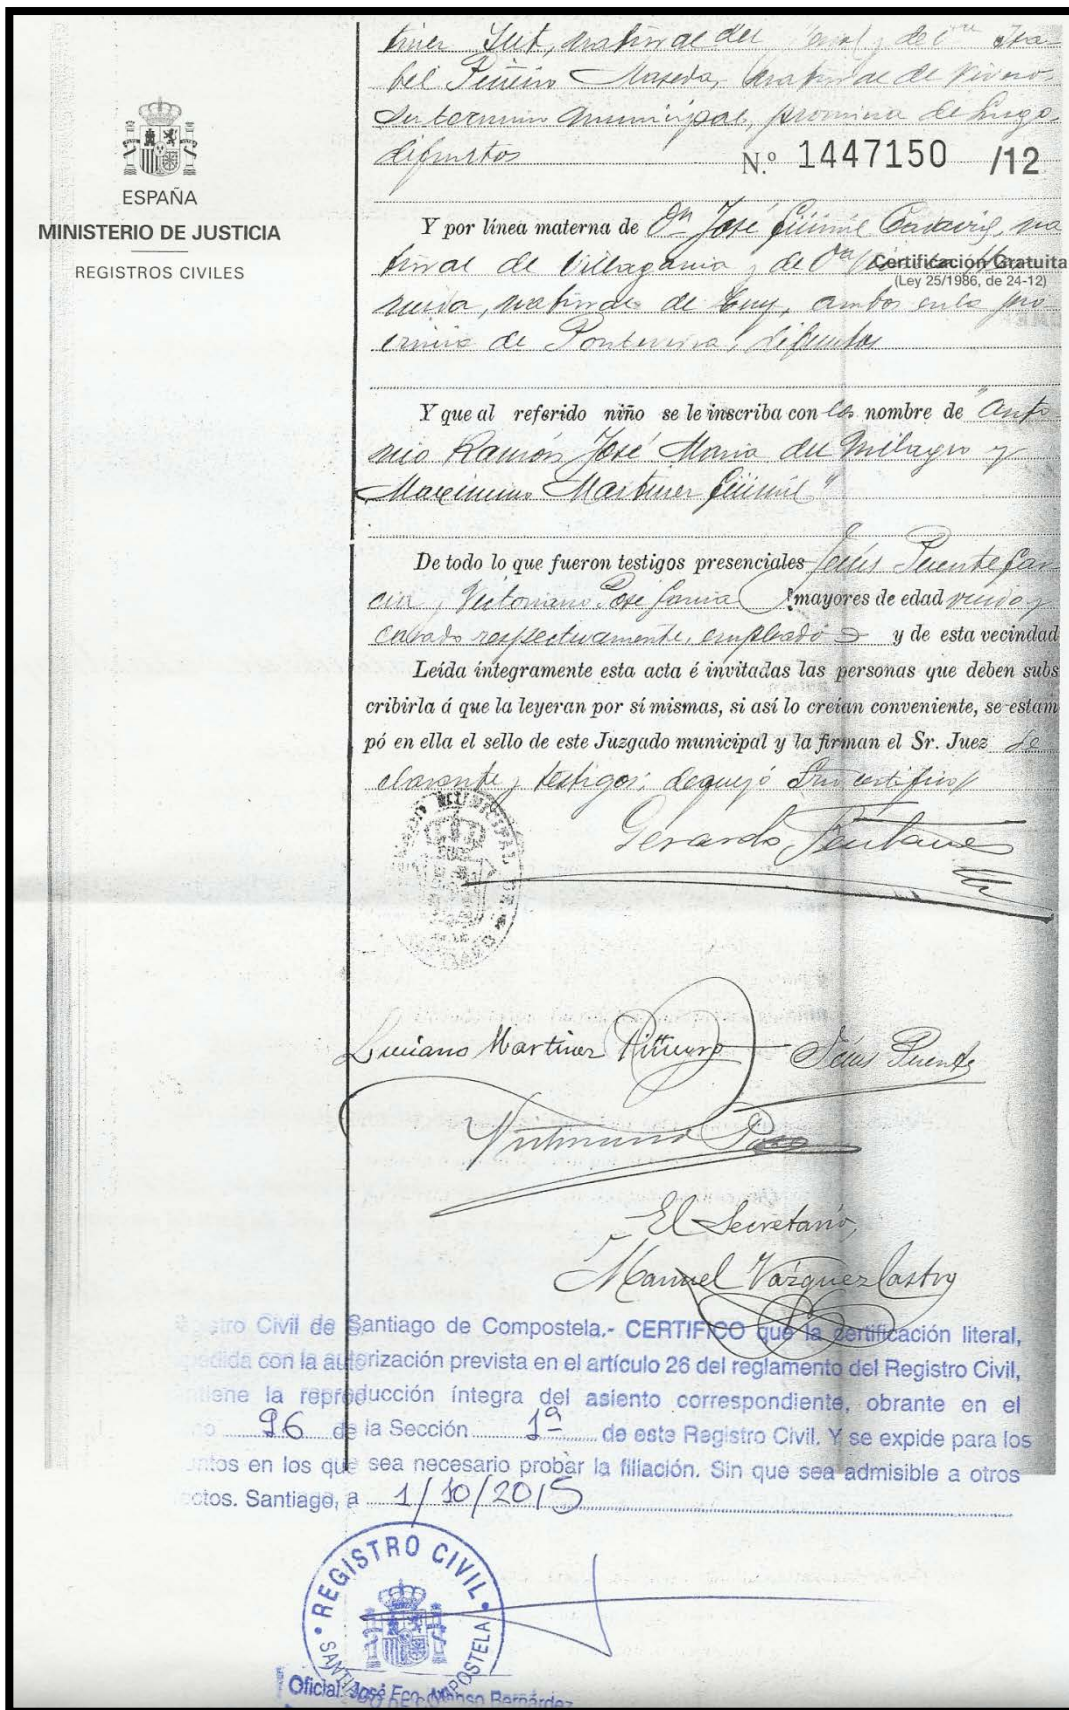 ESPAÑA
MINISTERIO DE JUSTICIA
REGISTROS CIVILES
natural del de Dña Isa-
bel Piñeiro Maseda, natural de Vivero,
su termino municipal, provincia de Lugo,
difuntos
N.º 1447150 /12
Y por línea materna de Dn José Güimil na
tural de Villagarcia y de Dña
Certificación Gratuita
(Ley 25/1986, de 24-12)
natural de Tuy, ambos en la pro
vincia de Pontevedra, difuntos
Y que al referido niño se le inscriba con los nombre de "Anto
nio Ramón José Maria del Milagro y
Maximino Martinez Güimil"
De todo lo que fueron testigos presenciales Jesús Puente Gar
cia y Victoriano Pose mayores de edad viudo y
casado respectivamente, empleado y de esta vecindad
Leída íntegramente esta acta é invitadas las personas que deben subs
cribirla á que la leyeran por sí mismas, si así lo creían conveniente, se estam
pó en ella el sello de este Juzgado municipal y la firman el Sr. Juez de
clarante y testigos; de que yó Srio certifico
Gerardo
Luciano Martinez Piñeiro Jesús Puente
Victoriano Pose
El Secretario,
Manuel Vázquez Castro
Civil de Santiago de Compostela.- CERTIFICO que la certificación literal,
con la autorización prevista en el artículo 26 del reglamento del Registro Civil,
la reproducción íntegra del asiento correspondiente, obrante en el
96 de la Sección 1ª de este Registro Civil. Y se expide para los
en los que sea necesario probar la filiación. Sin que sea admisible a otros
Santiago, a 1/10/2015
REGISTRO CIVIL
SANTIAGO DE COMPOSTELA
Oficial: José Fco. Alonso Bernárdez